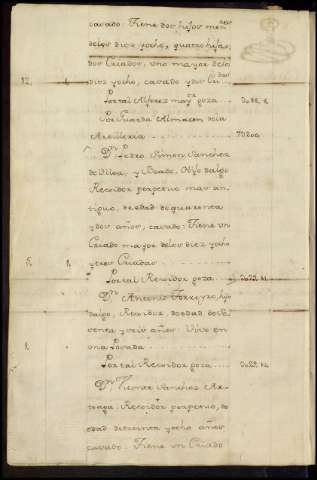 casado: Tiene dos hijos men.res
de los diez y ocho, quatro hijas,
dos Criados, uno mayor de los
12. 1. diez y ocho, casado y dos Cri.das
Por tal Alferez may.r goza
Por Guarda Almacen de la
Artilleria 7U200
D.n Pedro Simon Sanchez
de Ulloa, y Boado, Hijo dalgo
Rexidor perpetuo mas an-
tiguo, de edad de quarenta
y dos años, casado: Tiene un
Criado mayor de los diez y ocho
y tres Criadas
5. 1. Por tal Rexidor goza
D.n Antonio hijo
dalgo, Rexidor, de edad de
y seis años: Vive en
1. una Posada
Por tal Rexidor goza
D.n Vicente Sanchez
Rexidor perpetuo, de
edad de treinta y ocho años
casado: Tiene un Criado